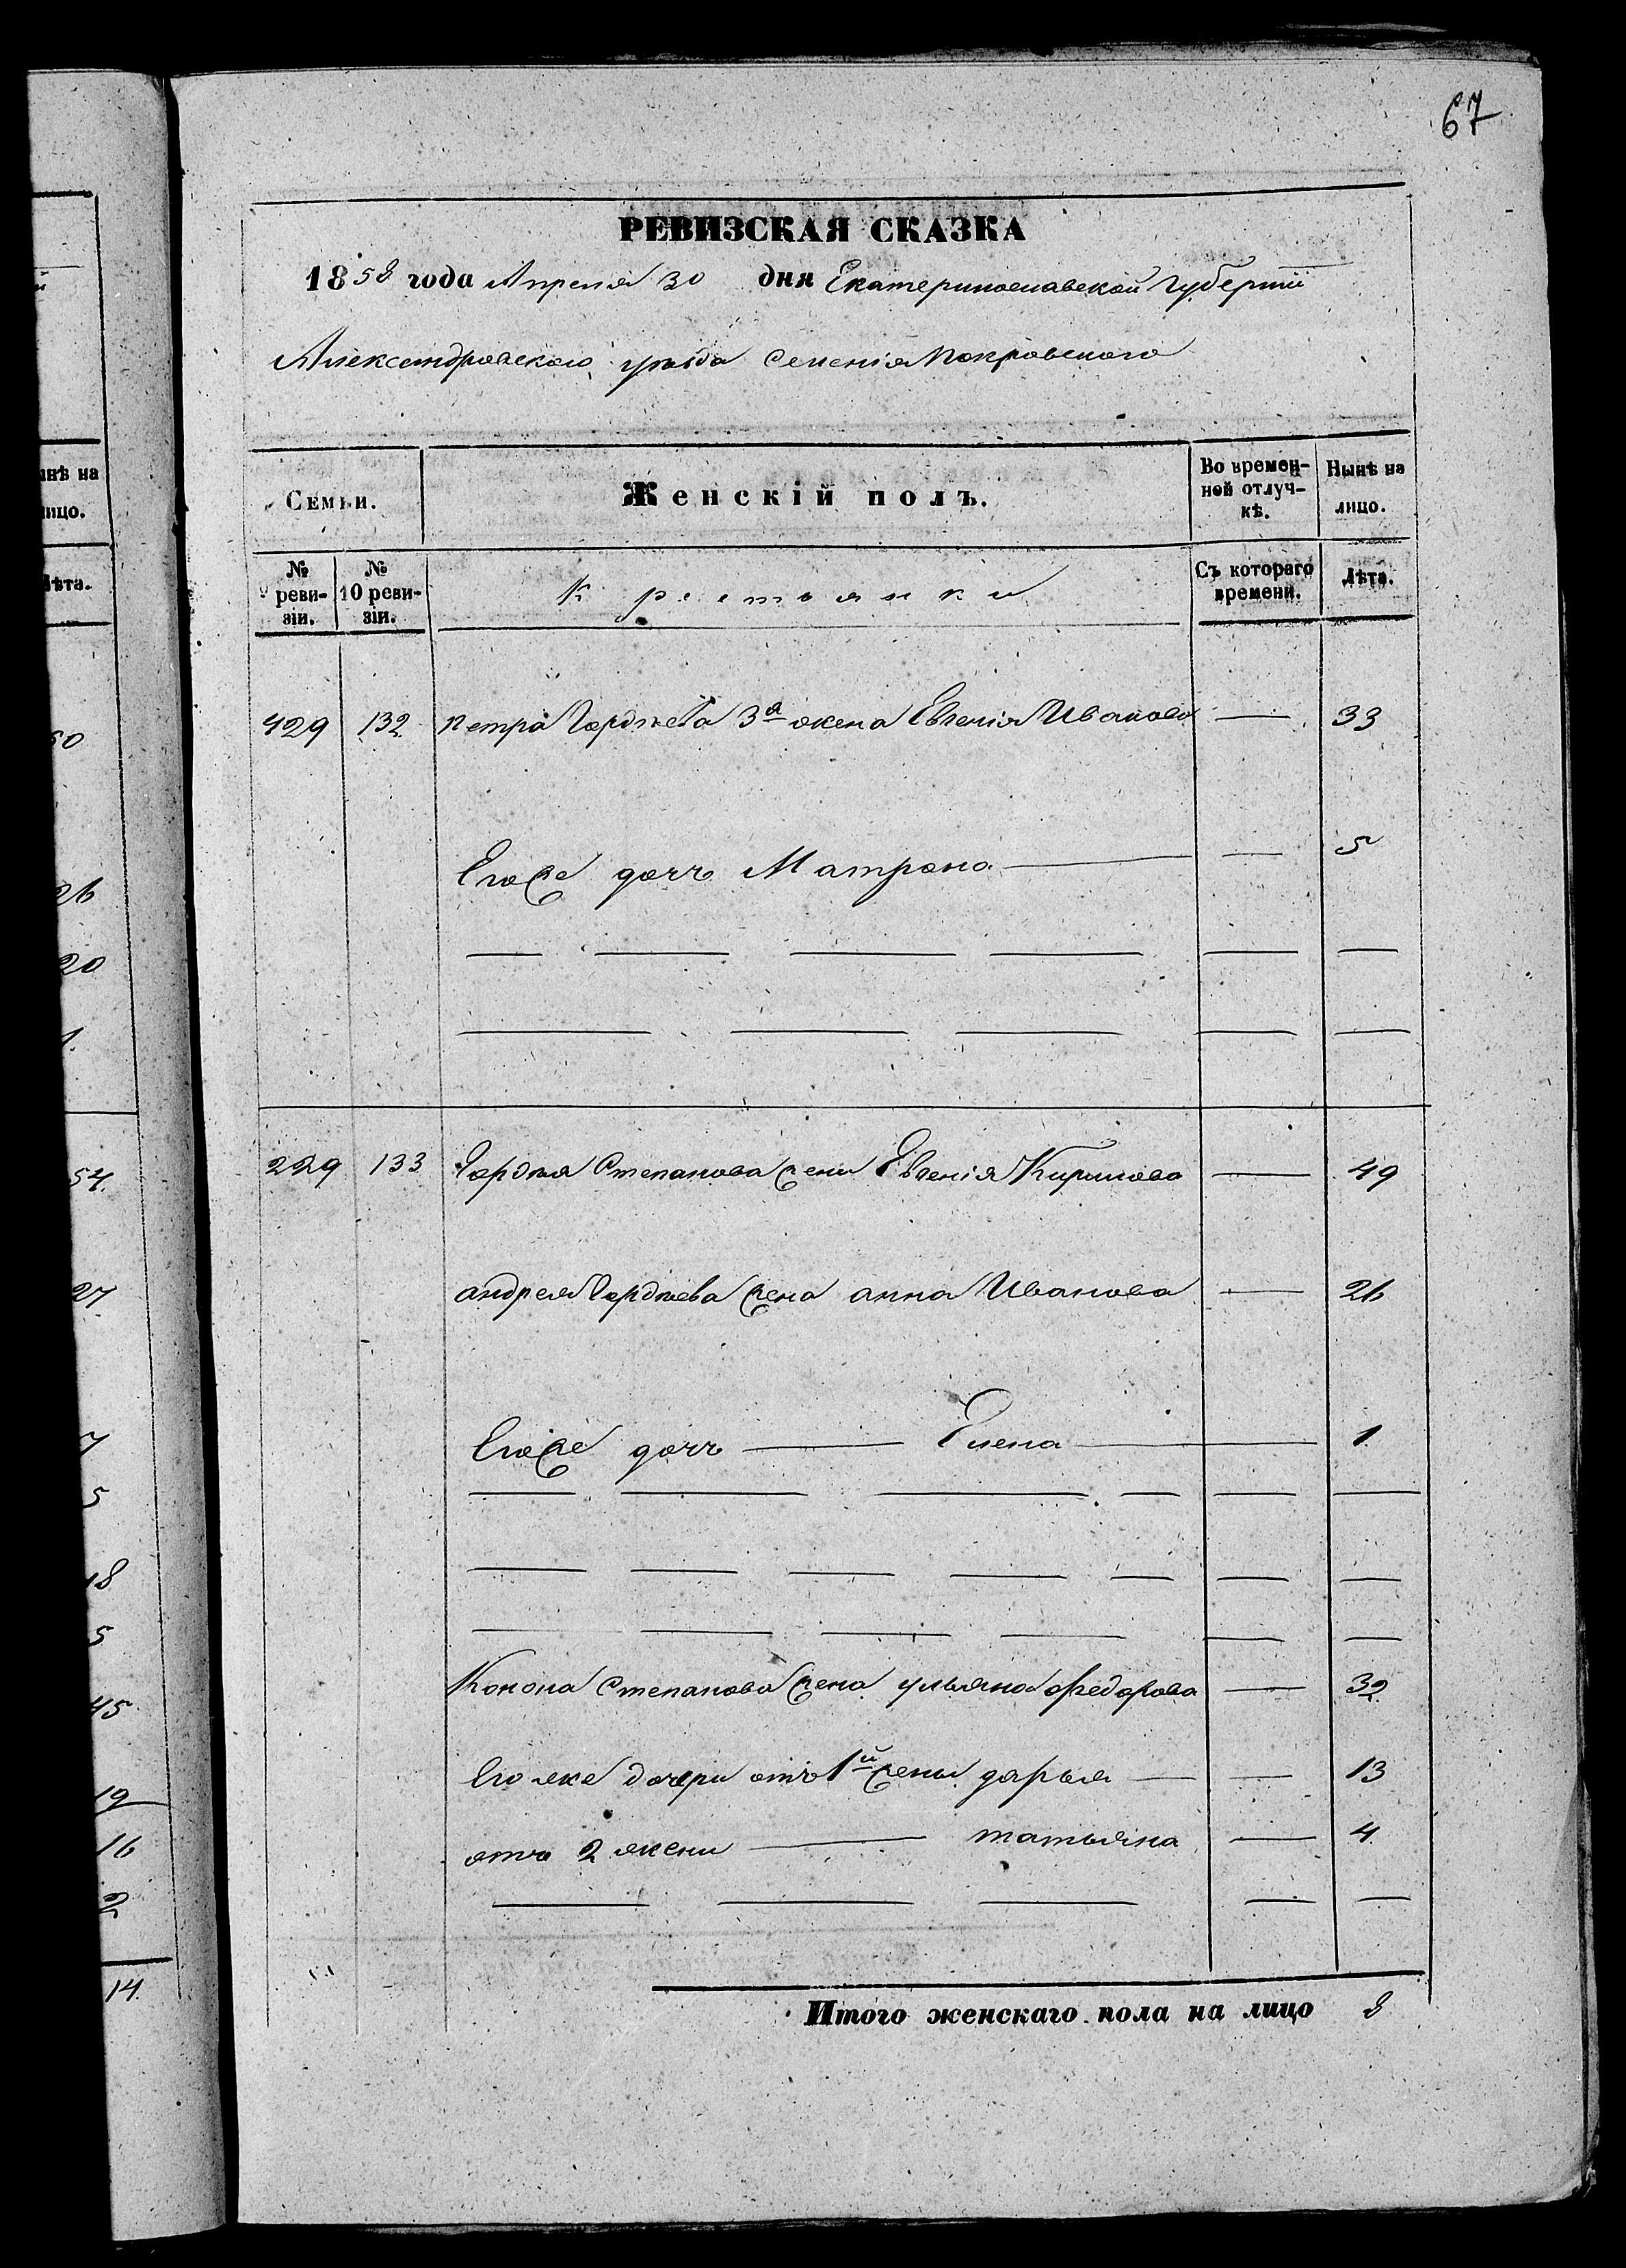 67
РЕВИЗСКАЯ СКАЗКА
1858 года Апреля 30 дня Екатеринославской Губерніи
Александровского уѣзда Селенія Покровского
Семьи.
Женскій полъ.
Во времен-
ной отлуч-
кѣ.
Ныне на
лицо.
№
9 реви-
зіи.
№
10 реви-
зіи.
Крестьянки
Съ котораго
времени.
Лѣта.
429 132 Петра Гордѣева 3я жена Евгенія Иванова — 33
Его же дочь Матрона — — 5
229 133 Гордѣя Степанова жена Евгенія Кирилова — 49
андрея Гордѣева жена анна Иванова — 26
Его же дочь — Елена — 1
Конона Степанова жена ульяна федорова — 32
Его же дочери отъ 1й жены дарья — — 13
отъ 2 жени — татьяна — 4
Итого женскаго пола на лицо 8
ынѣ на
лицо.
Лѣта.
50
26
20
1.
54.
27
7
5
18
5
45
19
16
2
14.